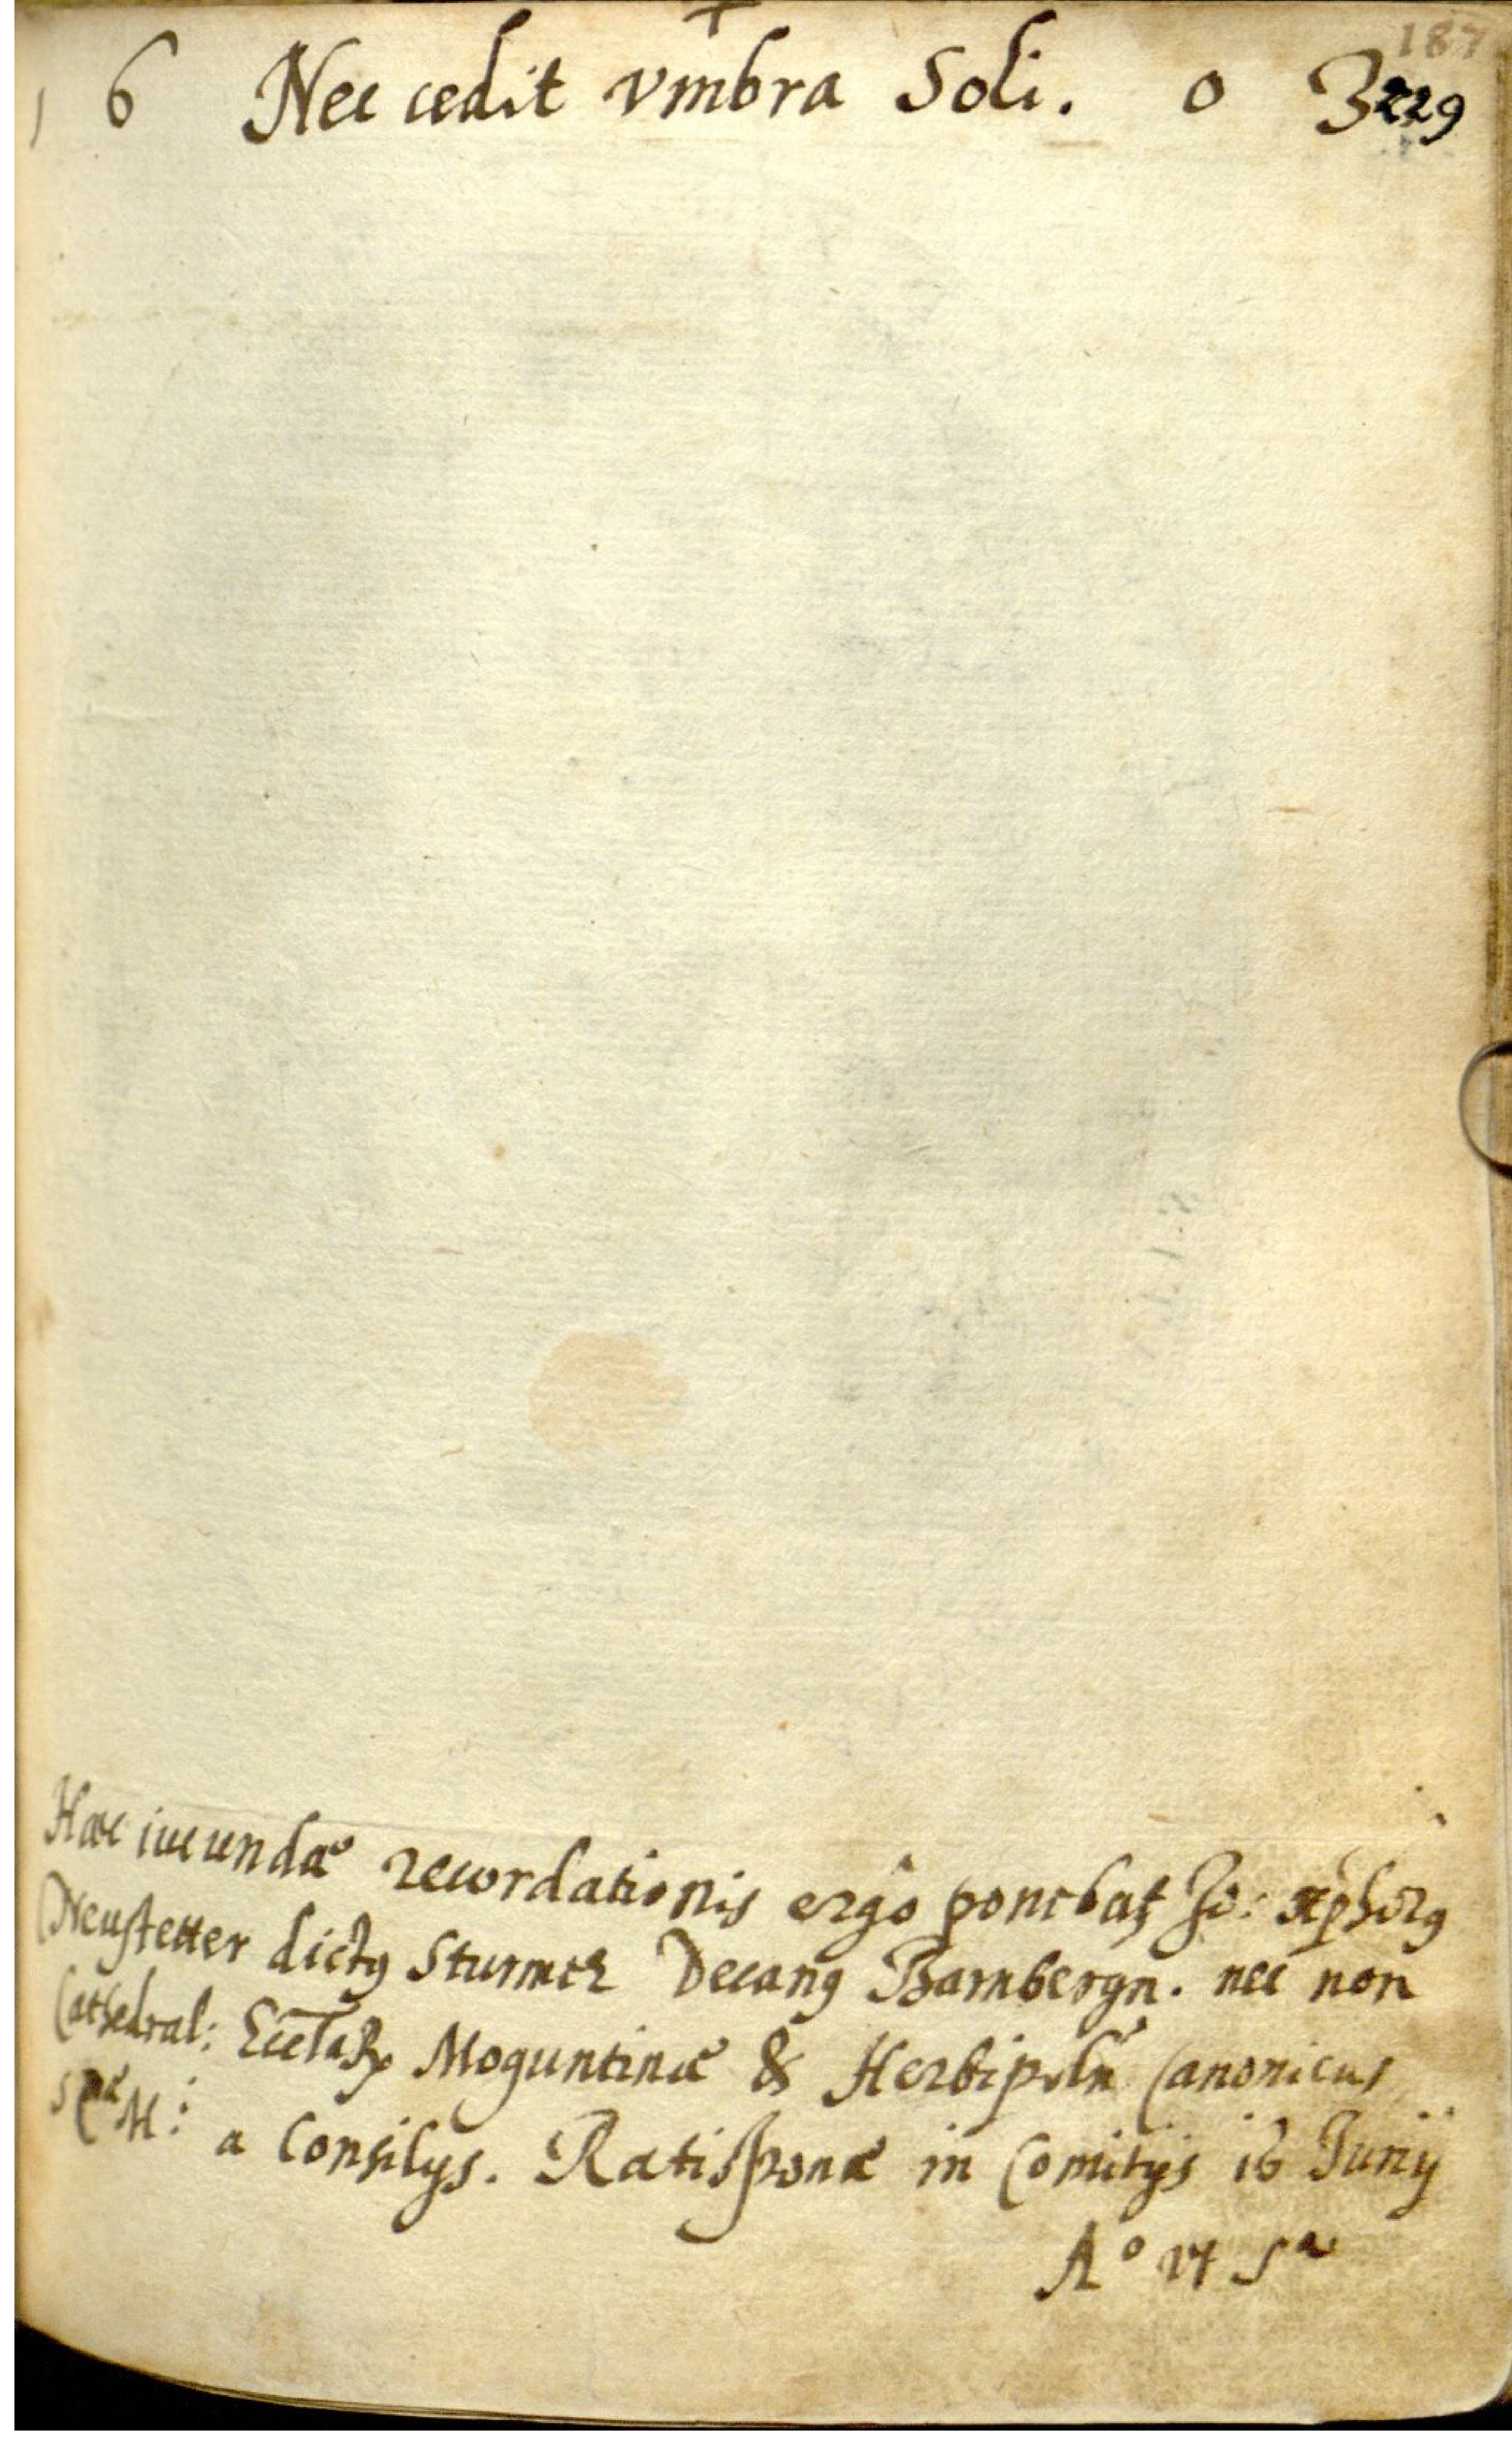 187
229
+
1 6 Nec cedit vmbra Soli. 0 3
Haec iucundae recordationis ergo ponebat Jo: xphorg
Neustetter dictg Sturmer Decang Bambergn. nec non
Cathedral: Eccl̄aꝝ Moguntinae & Herbipoln Canonicus
a Consilijs. Ratisponae in Comitijs 16 Junij
Aº